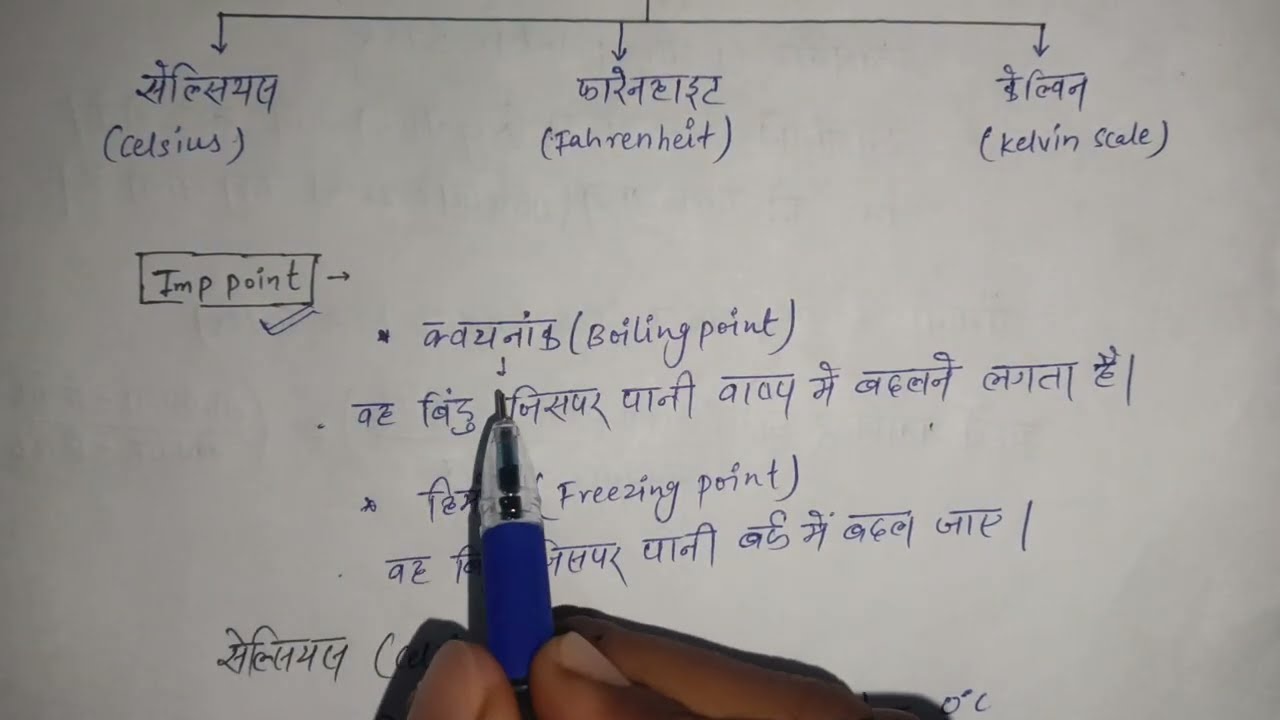 सेल्सियस फारेनहाइट केल्विन
(Celsius) (Fahrenheit) (Kelvin scale)
Imp point →
* क्वयनांक (Boiling point)
वह बिंदु जिसपर पानी वाष्प में बदलने लगता है।
* (Freezing point)
वह जिसपर पानी बर्फ में बदल जाए।
सेल्सियस
0°C